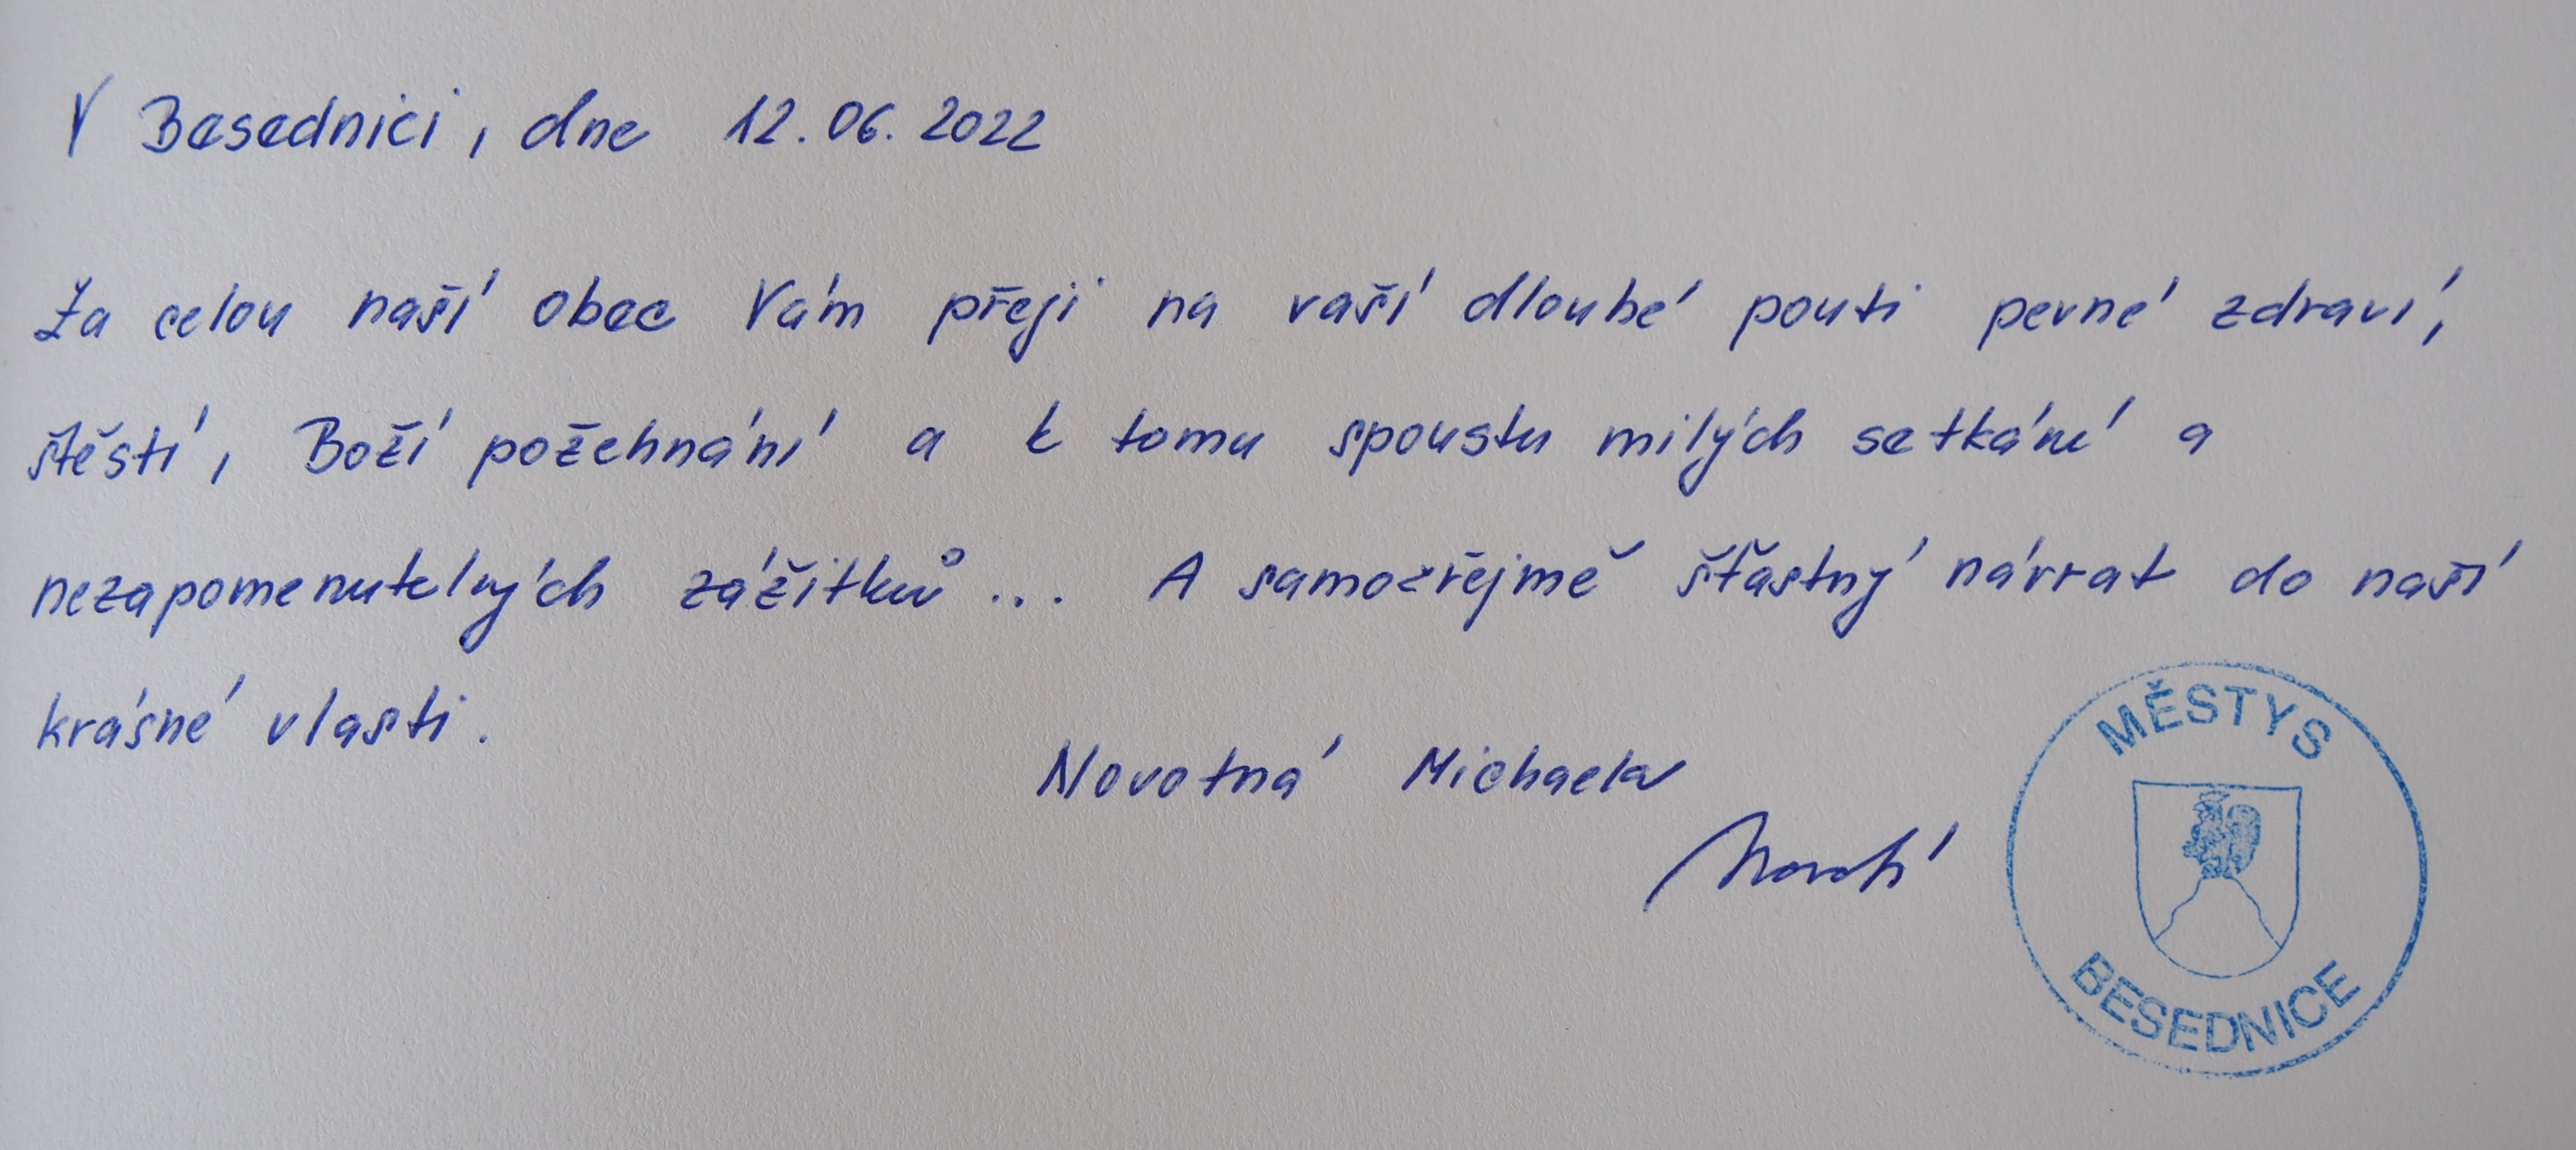 V Besednici, dne 12.06.2022
Za celou naší obec Vám přeji na vaší dlouhé pouti pevné zdraví,
štěstí, Boží požehnání a k tomu spoustu milých setkání a
nezapomenutelných zážitků ... A samozřejmě šťastný návrat do naší
krásné vlasti.
Novotná Michaela
MĚSTYS
BESEDNICE